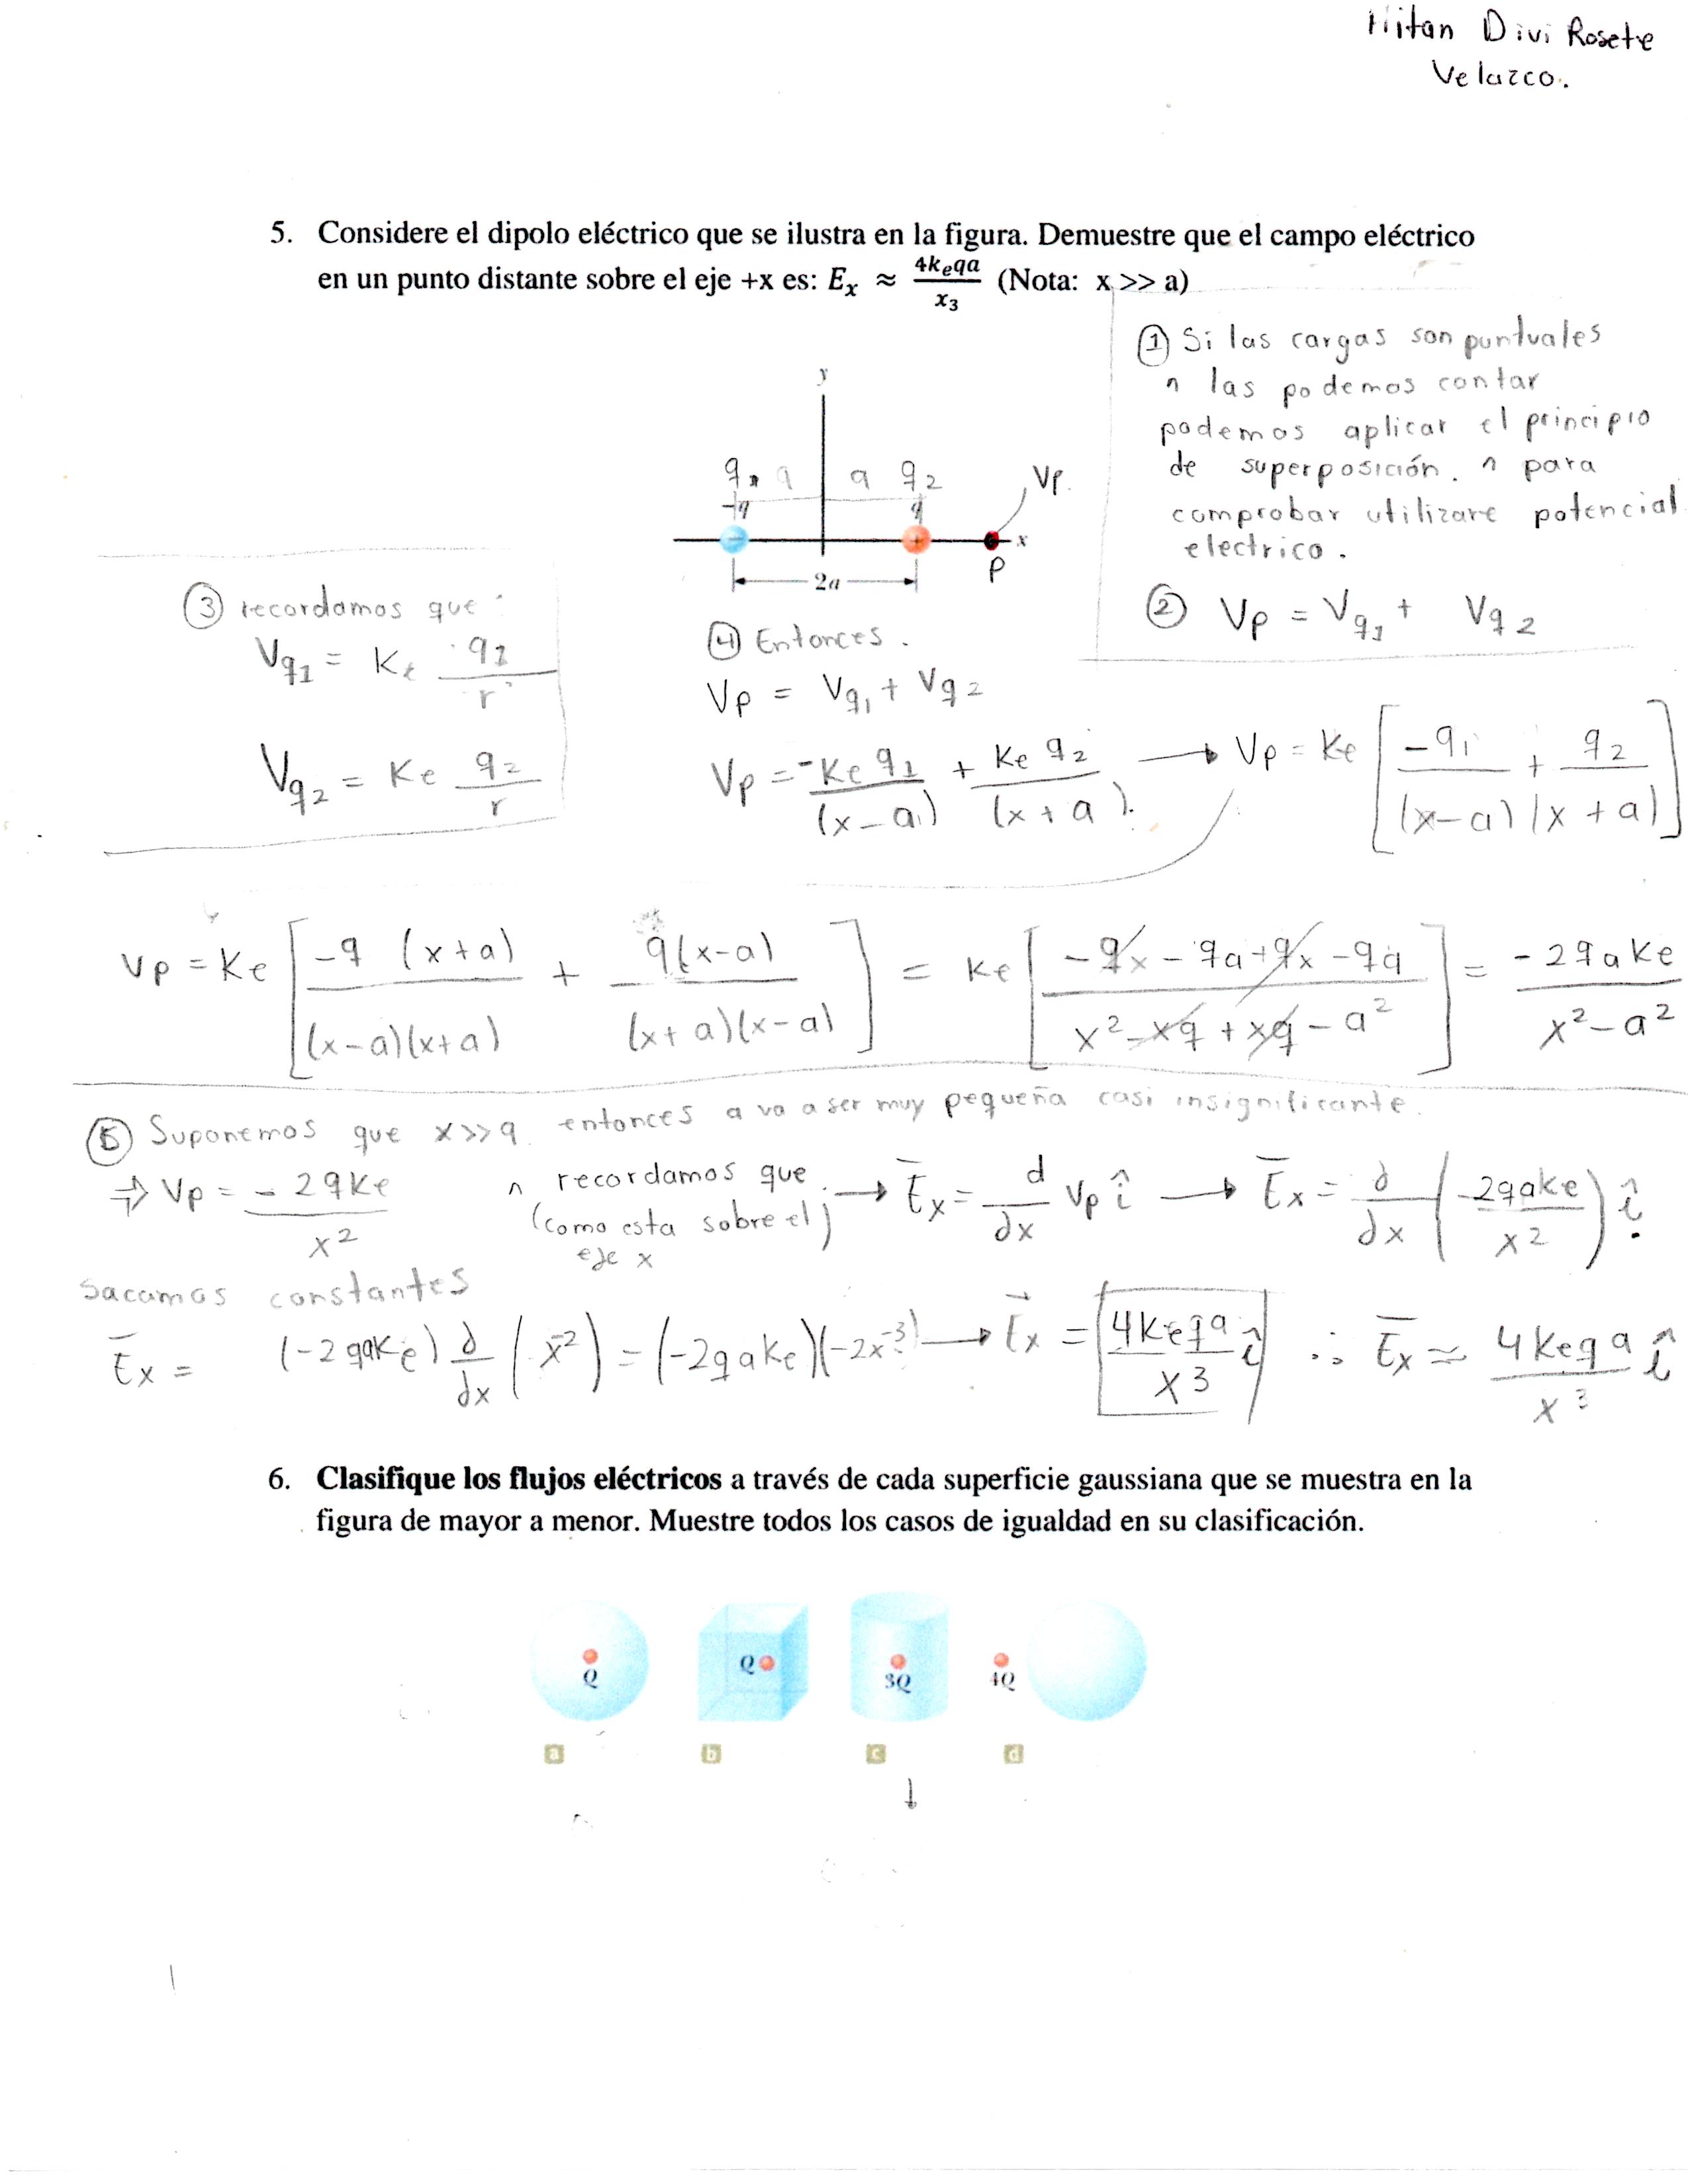 Divi Rosete
Velazco.
5. Considere el dipolo eléctrico que se ilustra en la figura. Demuestre que el campo eléctrico
en un punto distante sobre el eje +x es: Eₓ ≈ 4kₑqa / x₃ (Nota: x >> a)
① Si las cargas son puntuales
∩ las podemos contar
podemos aplicar el principio
de superposición. ∩ para
comprobar utilizare potencial
electrico.
② Vp = Vq₁ + Vq₂
y
q₁ a a q₂ Vp.
-q q
x
P
2a
③ recordamos que:
Vq₁ = Ke q₁ / r
Vq₂ = Ke q₂ / r
④ Entonces.
Vp = Vq₁ + Vq₂
Vp = -Ke q₁ / (x-a) + Ke q₂ / (x+a). → Vp = Ke [ -q₁ / (x-a) + q₂ / (x+a) ]
Vp = Ke [ -q (x+a) / (x-a)(x+a) + q(x-a) / (x+a)(x-a) ] = Ke [ -qx - qa + qx - qa / x² - xa + xa - a² ] = -2qake / x² - a²
⑤ Suponemos que x>>a. entonces a va a ser muy pequeña casi insignificante.
⇒ Vp = - 2qke / x² ∩ recordamos que (como esta sobre el eje x) → Ēx = d/dx Vp î → Ēx = d/dx ( -2qake / x² ) î.
Sacamos constantes
Ēx = (-2qake) d/dx ( x⁻² ) = (-2qake)(-2x⁻³) → Ēx = 4keqa / x³ î ∴ Ēx ≈ 4keqa / x³ î
6. Clasifique los flujos eléctricos a través de cada superficie gaussiana que se muestra en la
figura de mayor a menor. Muestre todos los casos de igualdad en su clasificación.
Q Q 3Q 4Q
a b c d